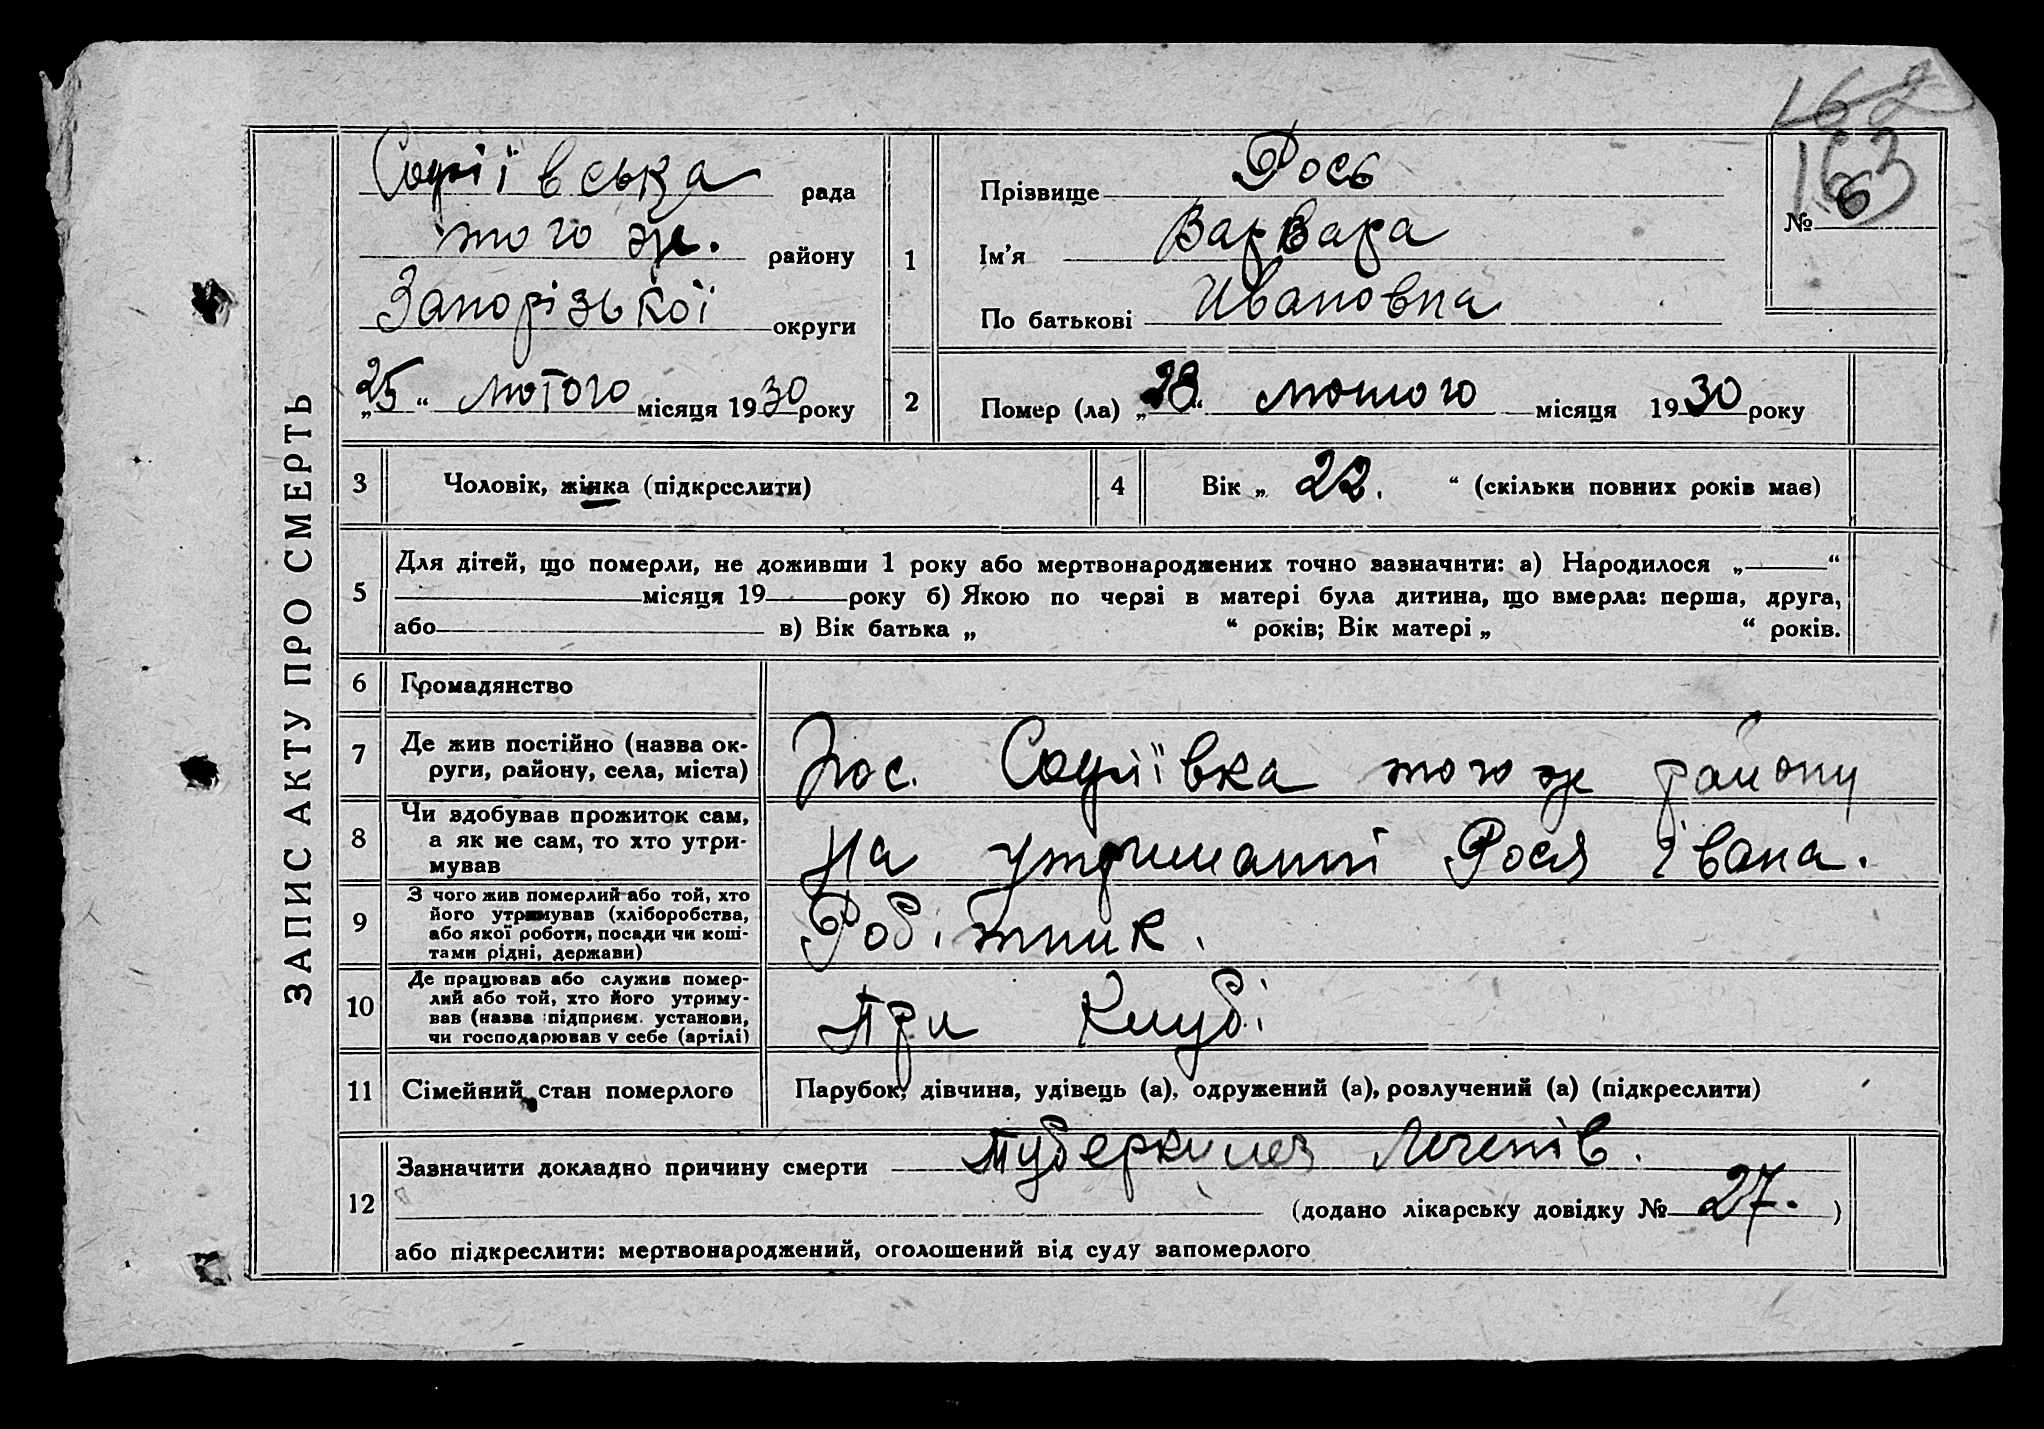 162
163
ЗАПИС АКТУ ПРО СМЕРТЬ
Софіївська рада
того ж. району
Запорізької округи
„25“ лютого місяця 1930 року
1
Прізвище Рось
Ім'я Варвара
По батькові Ивановна
№ 6
2
Помер (ла) „23“ лютого місяця 1930 року
3
Чоловік, жінка (підкреслити)
4
Вік „ 22. “ (скільки повних років має)
5
Для дітей, що померли, не доживши 1 року або мертвонароджених точно зазначити: а) Народилося „ “
місяця 19 року б) Якою по черзі в матері була дитина, що вмерла: перша, друга,
або в) Вік батька „ “ років; Вік матері „ “ років.
6
Громадянство
7
Де жив постійно (назва ок-
руги, району, села, міста)
Пос. Софіївка того ж району
8
Чи здобував прожиток сам,
а як не сам, то хто утри-
мував
На утриманні Рося Івана.
9
З чого жив померлий або той, хто
його утримував (хліборобства,
або якої роботи, посади чи кош-
тами рідні, держави)
Робітник.
10
Де працював або служив помер-
лий або той, хто його утриму-
вав (назва підприєм. установи,
чи господарював у себе (артілі)
При Клубі
11
Сімейний стан померлого
Парубок, дівчина, удівець (а), одружений (а), розлучений (а) (підкреслити)
12
Зазначити докладно причину смерти Туберкульоз Легенів.
(додано лікарську довідку № 27. )
або підкреслити: мертвонароджений, оголошений від суду запомерлого